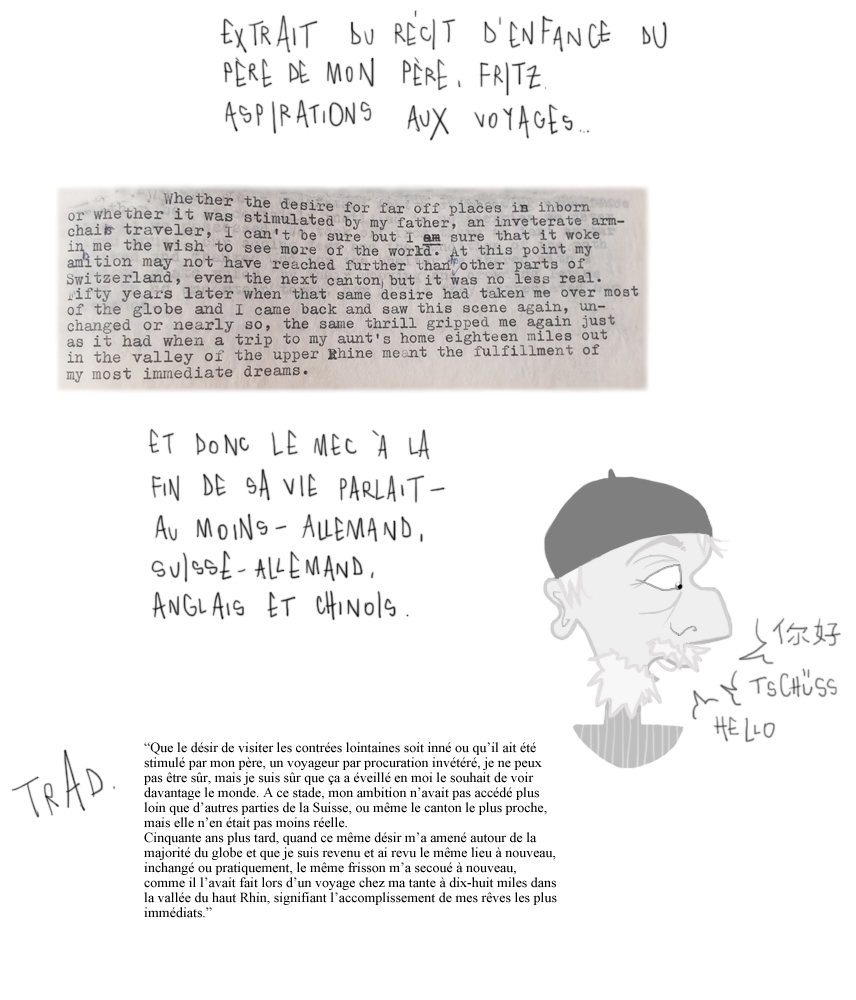 EXTRAIT DU RÉCIT D'ENFANCE DU
PÈRE DE MON PÈRE, FRITZ.
ASPIRATIONS AUX VOYAGES...
Whether the desire for far off places is inborn
or whether it was stimulated by my father, an inveterate arm-
chair traveler, I can't be sure but I am sure that it woke
in me the wish to see more of the world. At this point my
amition may not have reached further than other parts of
Switzerland, even the next canton, but it was no less real.
Fifty years later when that same desire had taken me over most
of the globe and I came back and saw this scene again, un-
changed or nearly so, the same thrill gripped me again just
as it had when a trip to my aunt's home eighteen miles out
in the valley of the upper Rhine meant the fulfillment of
my most immediate dreams.
ET DONC LE MEC À LA
FIN DE SA VIE PARLAIT -
AU MOINS - ALLEMAND,
SUISSE-ALLEMAND,
ANGLAIS ET CHINOIS.
你好
TSCHÜSS
HELLO
TRAD.
“Que le désir de visiter les contrées lointaines soit inné ou qu’il ait été
stimulé par mon père, un voyageur par procuration invétéré, je ne peux
pas être sûr, mais je suis sûr que ça a éveillé en moi le souhait de voir
davantage le monde. A ce stade, mon ambition n’avait pas accédé plus
loin que d’autres parties de la Suisse, ou même le canton le plus proche,
mais elle n’en était pas moins réelle.
Cinquante ans plus tard, quand ce même désir m’a amené autour de la
majorité du globe et que je suis revenu et ai revu le même lieu à nouveau,
inchangé ou pratiquement, le même frisson m’a secoué à nouveau,
comme il l’avait fait lors d’un voyage chez ma tante à dix-huit miles dans
la vallée du haut Rhin, signifiant l’accomplissement de mes rêves les plus
immédiats.”